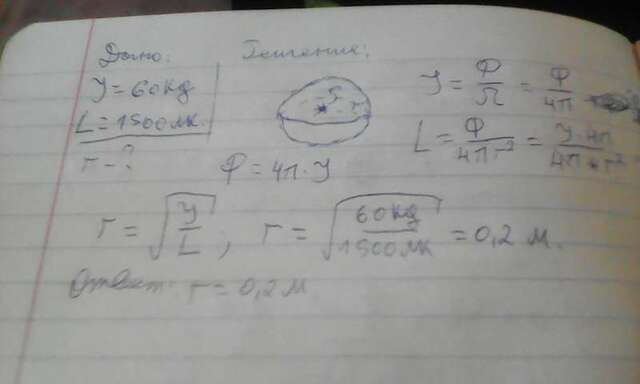 Дано: Решение:
J = 60кд
L = 1500лк.
r - ?
S r
J = Ф/Ω = Ф/4π
L = Ф/4πr² = J·4π/4π·r²
Ф = 4π·J
r = √(J/L); r = √(60кд/1500лк) = 0,2 м.
Ответ: r = 0,2 м